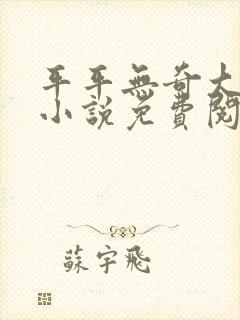 平平無奇大
小說免費閱
蘇宇飛